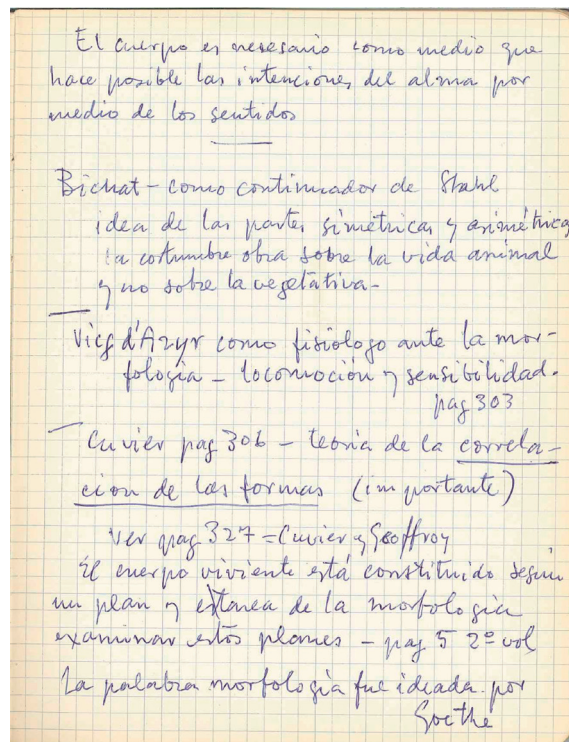 El cuerpo es necesario como medio que
hace posible las intenciones del alma por
medio de los sentidos
Bichat - como continuador de Stahl
idea de las partes simétricas y asimétricas
la costumbre obra sobre la vida animal
y no sobre la vegetativa -
Vicq d'Azyr como fisiólogo ante la mor-
fología - locomoción y sensibilidad.
pag 303
Cuvier pag 306 - teoria de la correla-
cion de las formas (importante)
Ver pag 327 = Cuvier y Geoffroy
El cuerpo viviente está constituido según
un plan y es tarea de la morfologia
examinar estos planes - pag 5 2º vol
La palabra morfología fue ideada por
Goethe